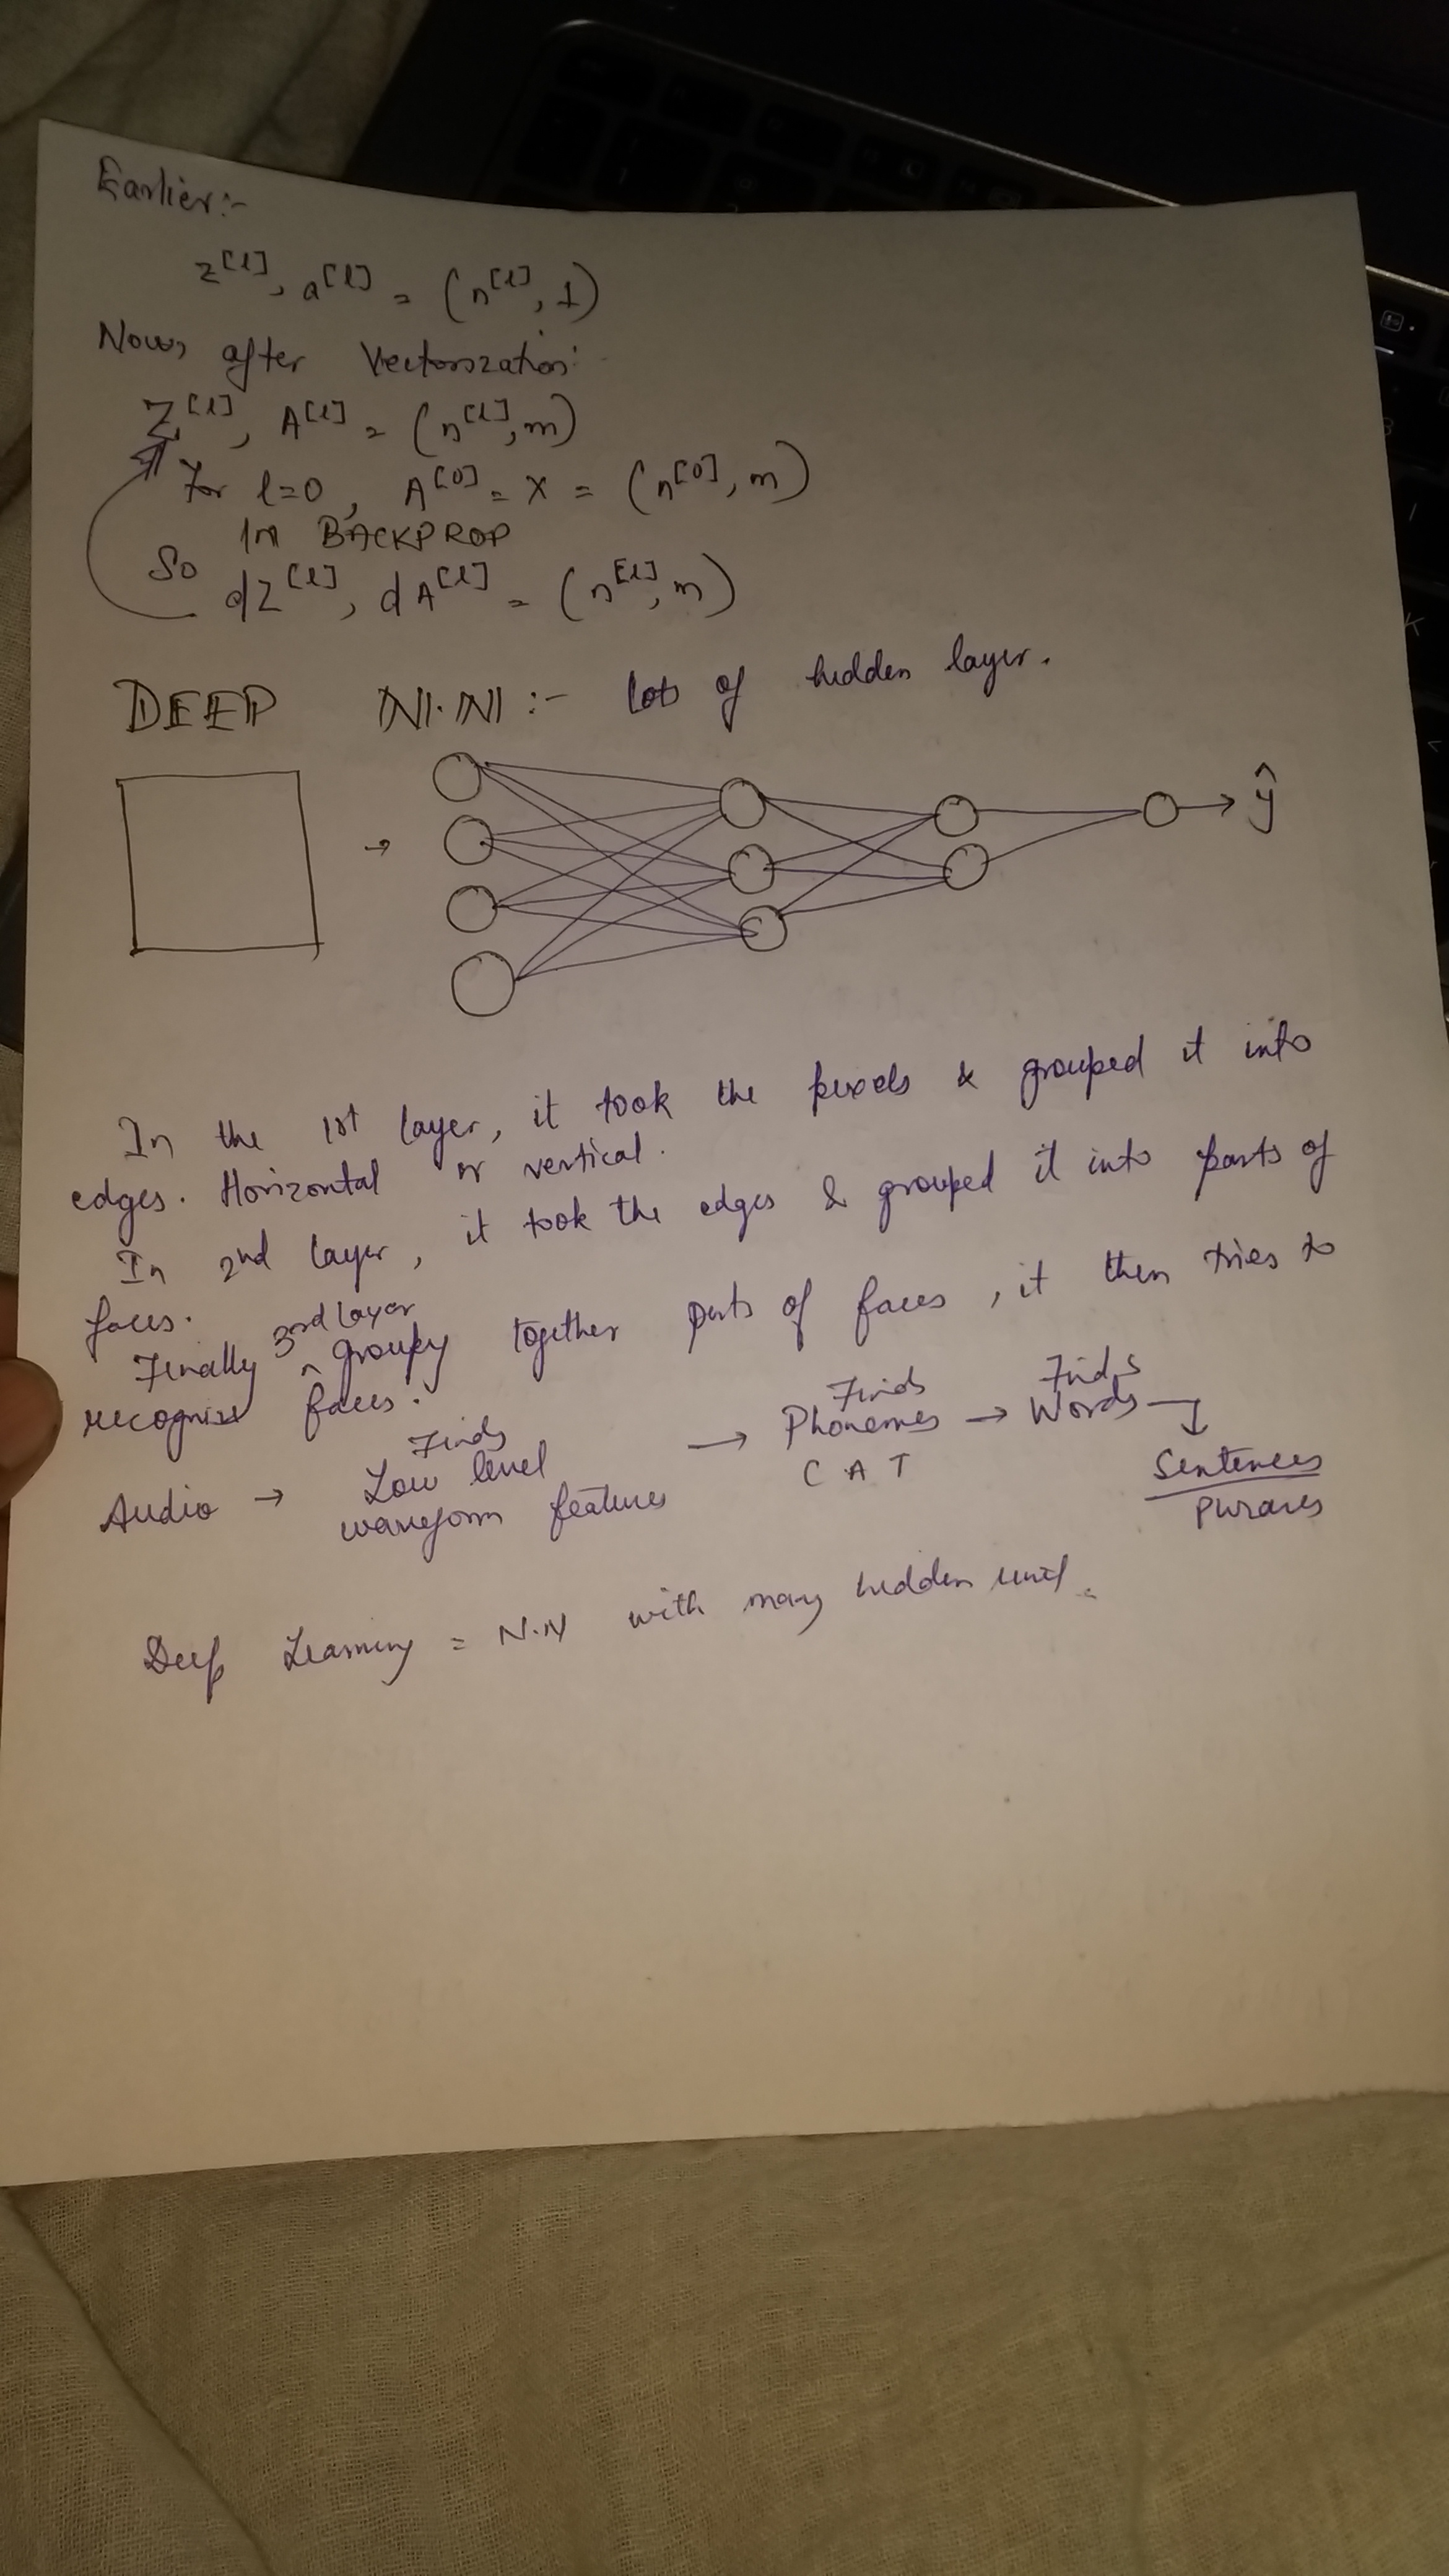 Earlier:-
z[l], a[l] = (n[l], 1)
Now, after Vectorization:
Z[l], A[l] = (n[l], m)
For l=0, A[0] = X = (n[0], m)
In BACKPROP
So dZ[l], dA[l] = (n[l], m)
DEEP N.N :- lots of hidden layer.
→ → ŷ
In the 1st layer, it took the pixels & grouped it into
edges. Horizontal or vertical.
In 2nd layer, it took the edges & grouped it into parts of
faces.
3rd layer
Finally ^ grouping together parts of faces, it then tries to
recognise faces.
Finds Finds Finds
Audio → Low level → Phonemes → Words →
waveform features C A T Sentences
Phrases
Deep Learning = N.N with many hidden unit.